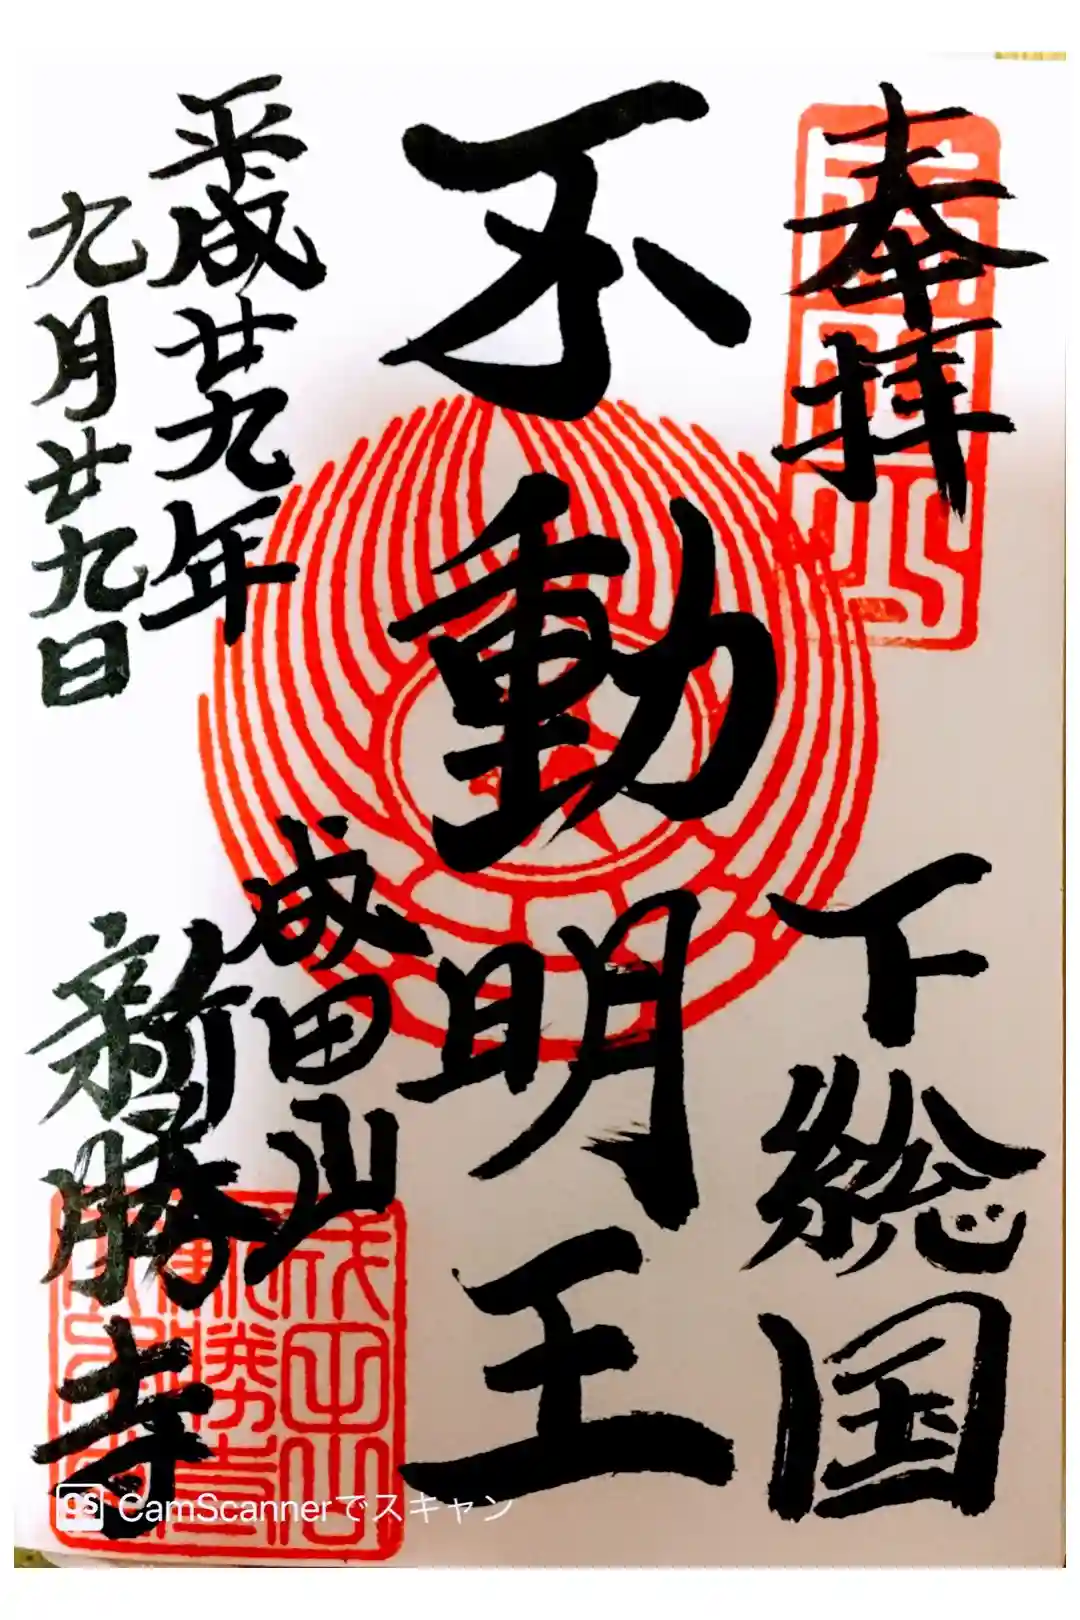 奉拝
下総国
不動明王
平成廿九年
九月廿九日
成田山
新勝寺
CamScannerでスキャン